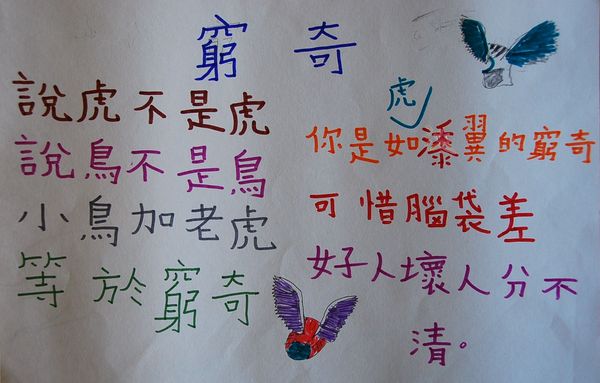 窮奇
說虎不是虎
說鳥不是鳥
小鳥加老虎
等於窮奇
虎
你是如漆翼的窮奇
可惜腦袋差
好人壞人分不
清。